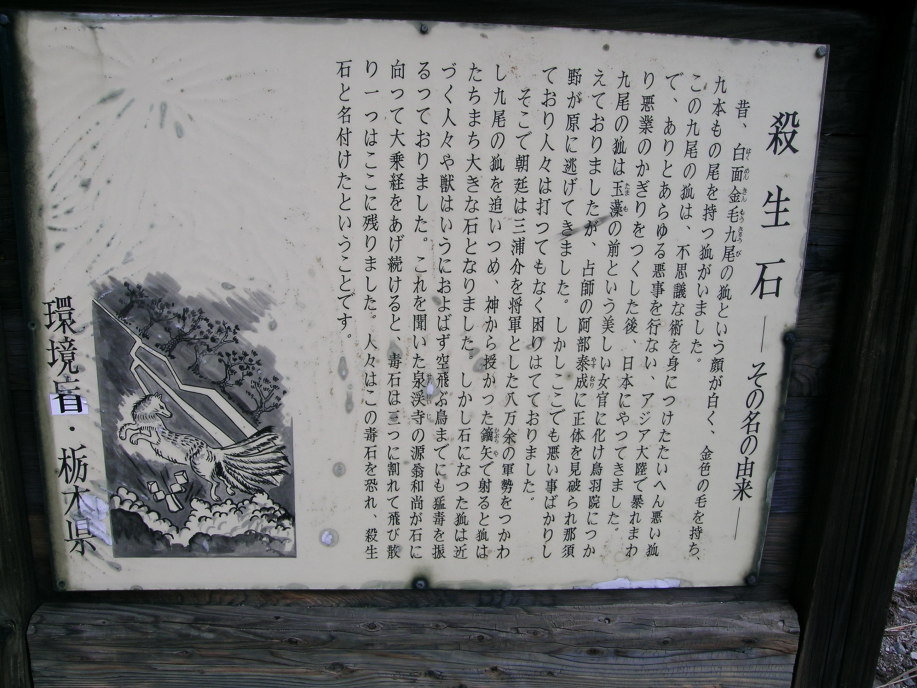 殺生石 ―その名の由来―
昔、白面金毛九尾の狐という顔が白く、金色の毛を持ち、
九本もの尾を持つ狐がいました。
この九尾の狐は、不思議な術を身につけたたいへん悪い狐
で、ありとあらゆる悪事を行ない、アジア大陸で暴れまわ
り悪業のかぎりをつくした後、日本にやってきました。
九尾の狐は玉藻の前という美しい女官に化け鳥羽院につか
えておりましたが、占師の阿部泰成に正体を見破られ那須
野が原に逃げてきました。しかしここでも悪い事ばかりし
ており人々は打つてもなく困りはてておりました。
そこで朝廷は三浦介を将軍とした八万余の軍勢をつかわ
し九尾の狐を追いつめ、神から授かった鏑矢で射ると狐は
たちまち大きな石となりました。しかし石になった狐は近
づく人々や獣はいうにおよばず空飛ぶ鳥までにも猛毒を振
るっておりました。これを聞いた泉渓寺の源翁和尚が石に
向って大乗経をあげ続けると、毒石は三つに割れて飛び散
り一つはここに残りました。人々はこの毒石を恐れ、殺生
石と名付けたということです。
環境省・栃木県